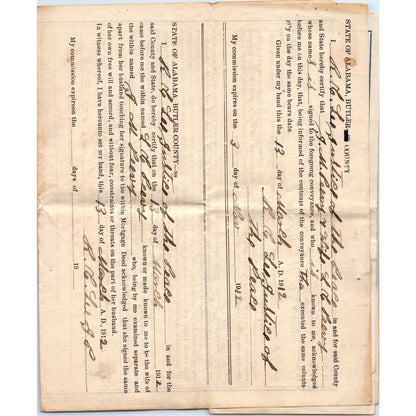 STATE OF ALABAMA, BUTLER COUNTY
I, Justice of the Peace in and for said County
and State hereby certify that
whose name is signed to the foregoing conveyance, and who is known to me, acknowledged
before me on this day, that, being informed of the contents of the conveyance executed the same volunta-
rily on the day the same bears date.
Given under my hand this the 13 day of March A. D. 1912
Justice of
the Peace
My commission expires on the 3 day of 1912
STATE OF ALABAMA, BUTLER COUNTY—ss
I, Justice of the Peace in and for the
said County and State, do hereby certify that on the 13 day of March 1912
came before me the within named known or made known to me to be the wife of
the within named who, being by me examined separate and
apart from her husband touching her signature to the within Mortgage Deed acknowledged that she signed the same
of her own free will and accord, and without fear, constraints or threats on the part of her husband.
In witness whereof, I have hereunto set my hand, this 13 day of March A. D. 1912
My commission expires on the days of 19